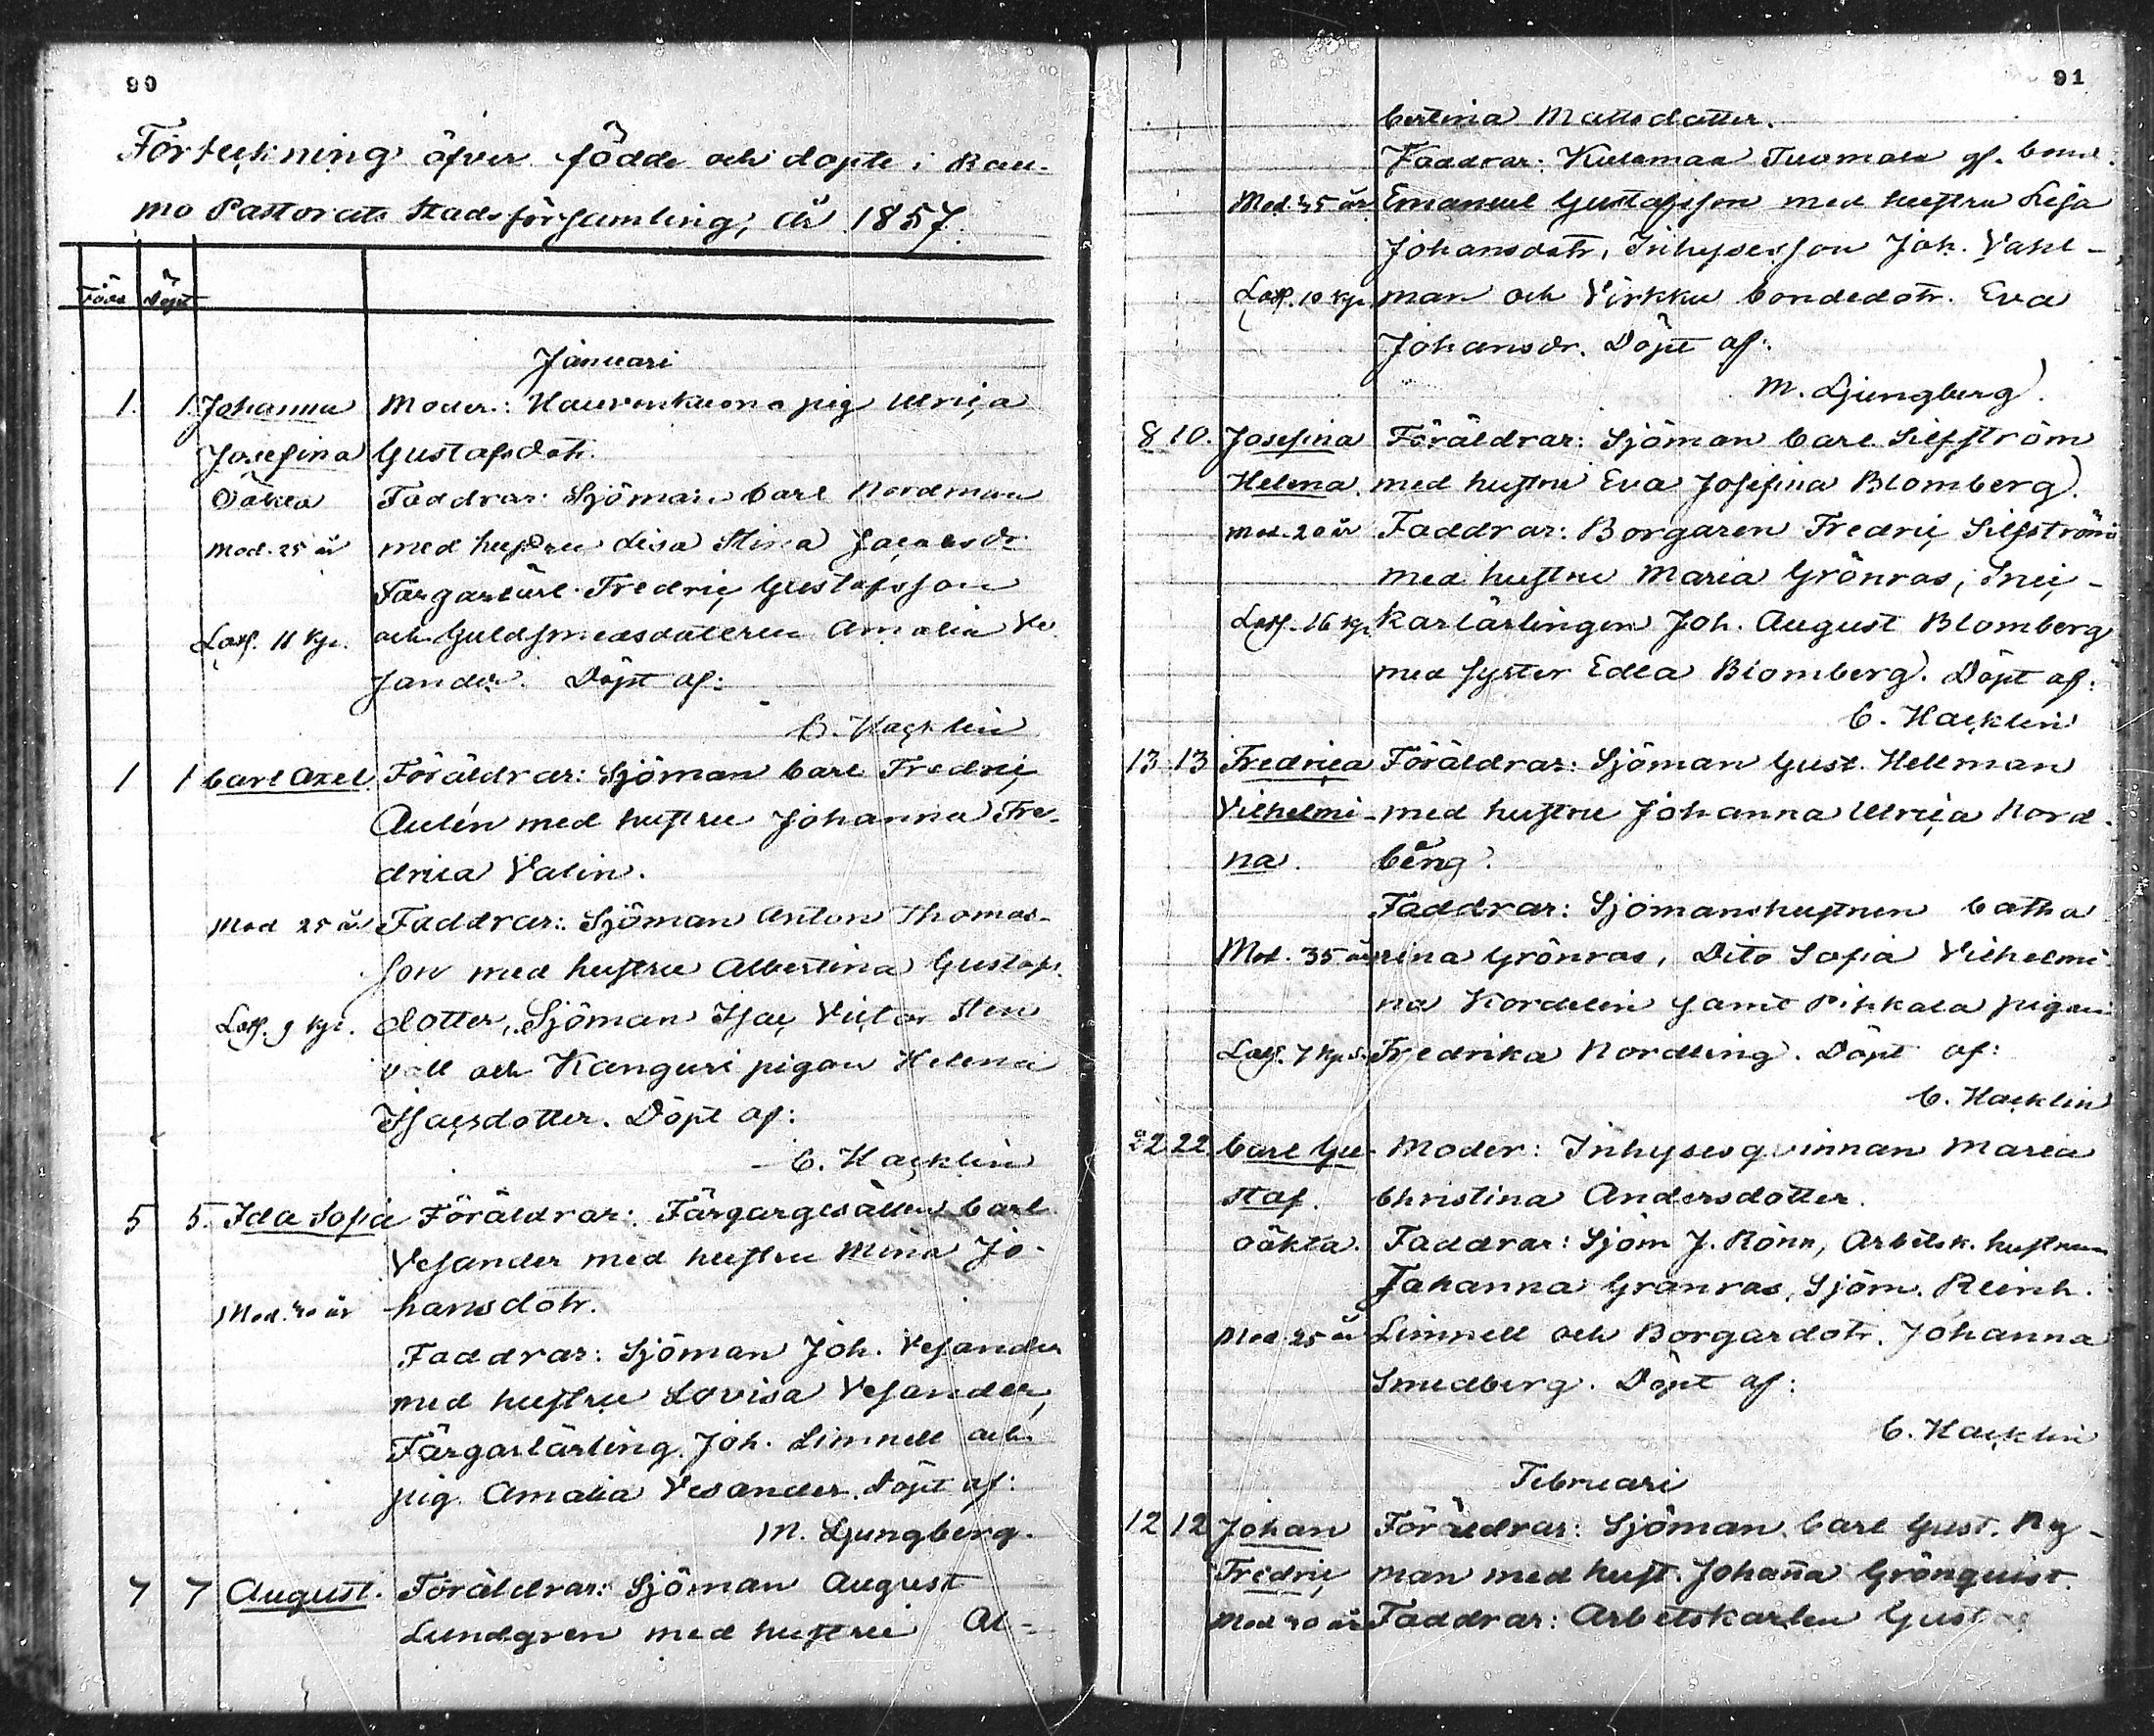 90
Förteckning öfver födde och döpte i Rau-
mo Pastorats Stadsförsamling, år 1857.
Född Döpt
Januari
1. 1. Johanna Moder: pig Ulrica
Josefina Gustafsdotr.
Oäkta Faddrar: Sjöman Carl Nordman
Mod. 25 år med hustru Lisa Stina Jacobsdr
Färgarlärl. Fredric Gustafsson
Lasf. 11 kp. och Guldsmedsdottern Amalia Ve-
sander. Döpt af:
Hacklin
1 1 Carl Axel. Föräldrar: Sjöman Carl Fredric
Aulén med hustru Johanna Fre-
drica Valin.
Mod 25 år Faddrar: Sjöman Anton Thomas-
son med hustru Albertina Gustafs-
Lasf. 9 kp. dotter, Sjöman Isac Victor Sten
vall och Kanguri pigan Helena
Isacsdotter. Döpt af:
C. Hacklin
5 5. Ida Sofia Föräldrar: Färgargesällen Carl
Vesander med hustru Mina Jo-
Mod. år hansdotr.
Faddrar: Sjöman Joh. Vesander
med hustru Lovisa Vesander,
Färgarlärling Joh. Limnell och
pig. Amalia Vesander. Döpt af:
M. Ljungberg.
7 7 August. Föräldrar: Sjöman August
Lundgren med hustru Al-
91
bertina Mattsdotter.
Faddrar: Tuomola gf. bond.
Mod. år Emanuel Gustafsson med hustru Lisa
Johansdotr, Inhysesson Joh. Vahl-
Lasf. 10 kp. man och Virkku bondedotr. Eva
Johansdr. Döpt af:
M. Ljungberg.
8 10. Josefina Föräldrar: Sjöman Carl Silfström
Helena. med hustru Eva Josefina Blomberg.
Mod. 20 år Faddrar: Borgaren Fredric Silfström
med hustru Maria Grönros, Snic-
Lasf. 16 kp. karlärlingen Joh. August Blomberg
med syster Edla Blomberg. Döpt af:
C. Hacklin
13 13 Fredrica Föräldrar: Sjöman Gust. Hellman
Vilhelmi- med hustru Johanna Ulrica Nord-
na. berg.
Faddrar: Sjömanshustrun Catha
Mod. 35 år rina Grönros, Dito Sofia Vilhelmi
na Kordelin samt Pikkala pigan
Lasf. 7 kp. Fredrika Nordling. Döpt af:
C. Hacklin
22 22. Carl Gu- Moder: Inhysesqvinnan Maria
staf. Christina Andersdotter.
oäkta. Faddrar: Sjöm J. Rönn, Arbetsk. hustrun
Johanna Grönros, Sjöm. Reinh.
Mod. 25 år Limnell och Borgardotr. Johanna
Smedberg. Döpt af:
C. Hacklin
Februari
12 12 Johan Föräldrar: Sjöman Carl Gust. Ny-
Fredric man med hust. Johan̄a Grönquist.
Mod år Faddrar: Arbetskarlen Gustaf